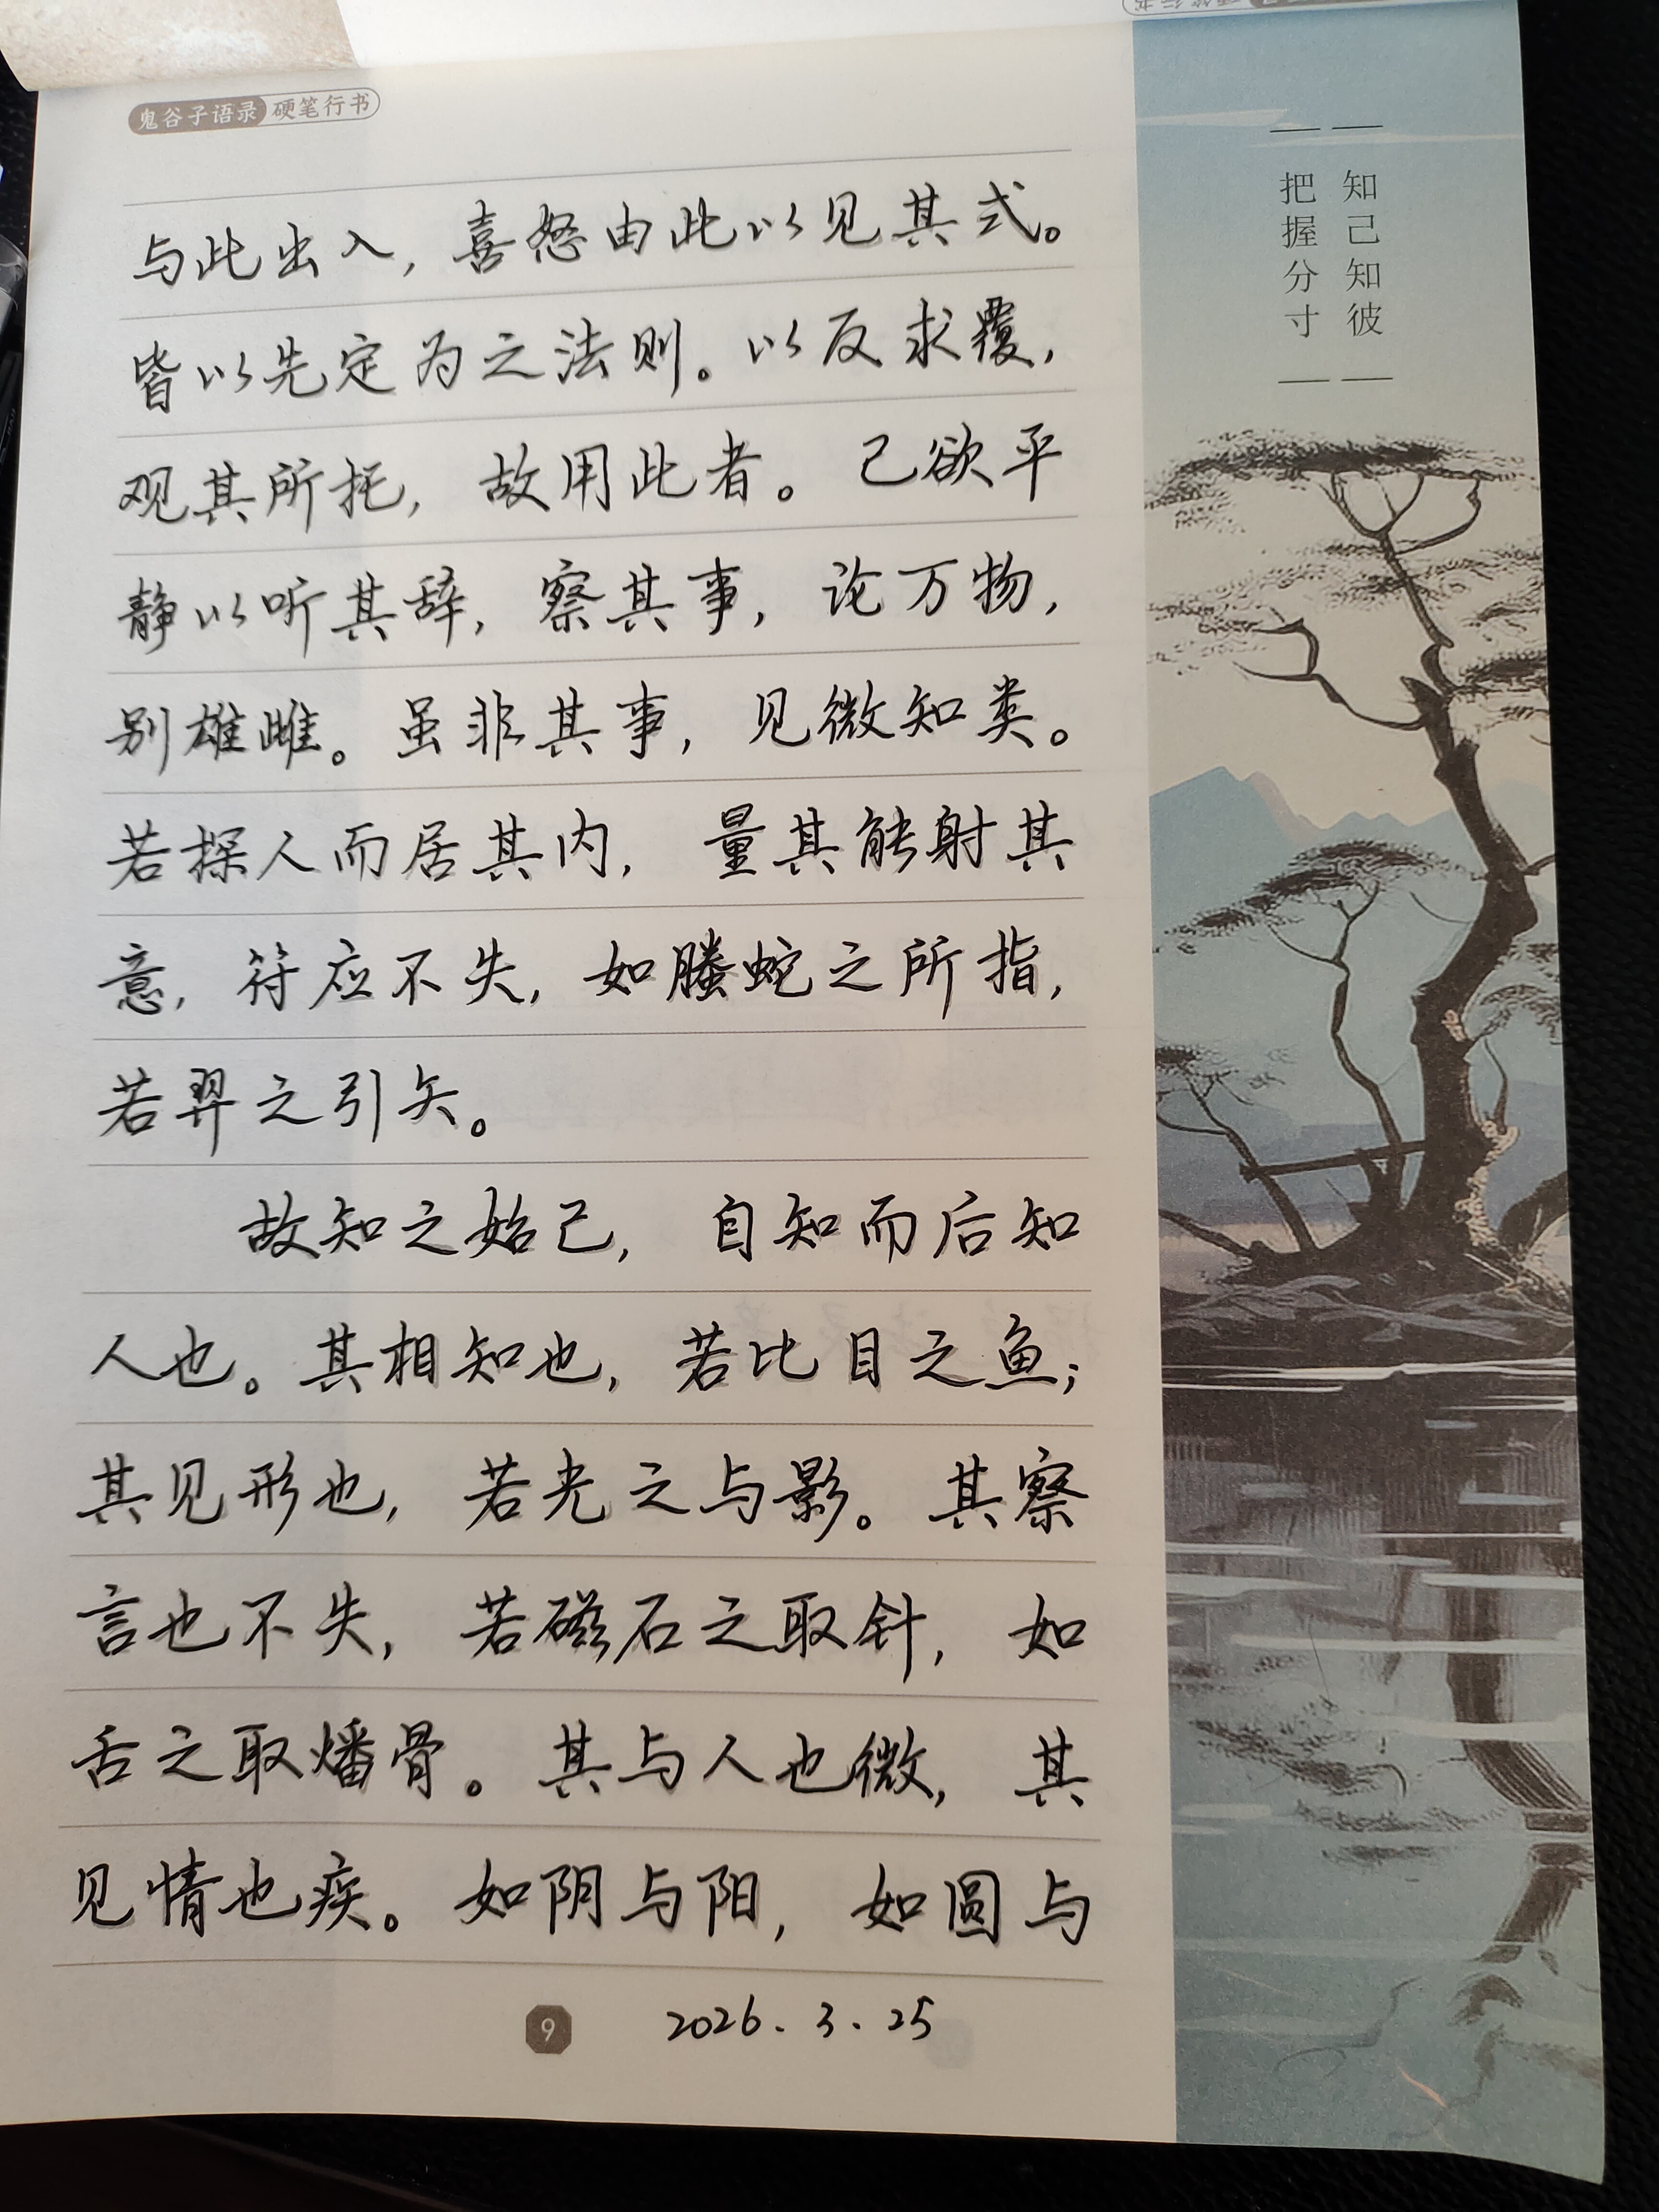 硬笔行书
鬼谷子语录 硬笔行书
知己知彼
把握分寸
与此出入，喜怒由此以见其式。
皆以先定为之法则。以反求覆，
观其所托，故用此者。己欲平
静以听其辞，察其事，论万物，
别雄雌。虽非其事，见微知类。
若探人而居其内，量其能射其
意，符应不失，如螣蛇之所指，
若羿之引矢。
故知之始己，自知而后知
人也。其相知也，若比目之鱼；
其见形也，若光之与影。其察
言也不失，若磁石之取针，如
舌之取燔骨。其与人也微，其
见情也疾。如阴与阳，如圆与
9 2026.3.25